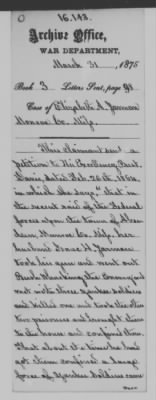 16.143.
Archive Office,
WAR DEPARTMENT,
March 31, 1875
Book 3 Letters Sent, page 98
Case of Elizabeth A. Jarman
Monroe Co. Miss.
This claimant sent a
petition to His Excellency, Prest
Davis dated Feb. 26th. 1864,
in which she says that in
the recent raid of the Federal
forces upon the town of Aber-
deen, Monroe Co. Miss. her
husband Isaac N. Jarman
took his gun and went out
Bush Whacking the Enemy and
met with three Yankee soldiers
and killed one and took the other
two prisoners and brought them
to the house and confined them.
That about the time he had
got them confined a large
force of Yankee soldiers came